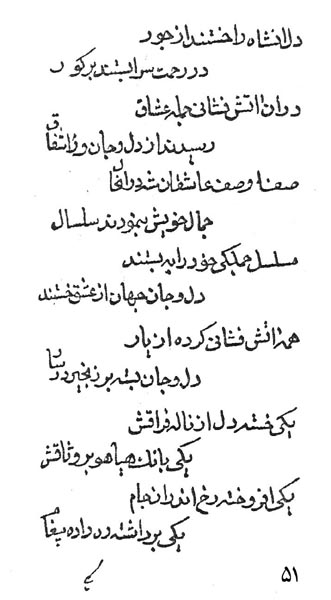 دل انشاه را خستند از جور
در رحمت سرا بستند بر کور
در ان اتش فشانی جمله عشاق
رسیدند از دل و جان در اشفاق
صف اوصف عاشقان شد در انحال
جمال خویش بنمودند سلسال
مسلسل جملکی خود را به بستند
دل و جان جهان از عشق خستند
همه اتش فشانی کرده از یار
دل و جان بسته بر زنجیر در
یکی خسته دل از ناله فراقش
یکی بانك هیاهو بر وثاقش
یکی افروخته رخ اندر انجام
یکی برداشته در داده پیغام
۵۱